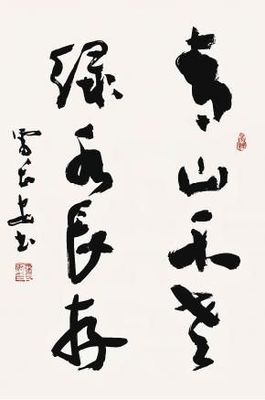 青山不老
绿水长存